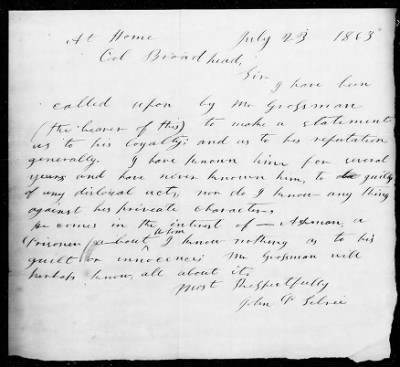 At Home July 23 1863
Col Broadhead,
Sir
I have been
called upon by Mr Grossman
(the bearer of this) to make a statement
as to his loyalty; and as to his reputation
generally. I have known him for several
years and have never known him, to be guilty
of any disloyal acts, nor do I know any thing
against his private character.
He comes in the interest of — Axman, a
Prisoner (about whom I know nothing as to his
guilt or innocence; Mr Grossman will
perhaps know, all about it.
most Respectfully
John